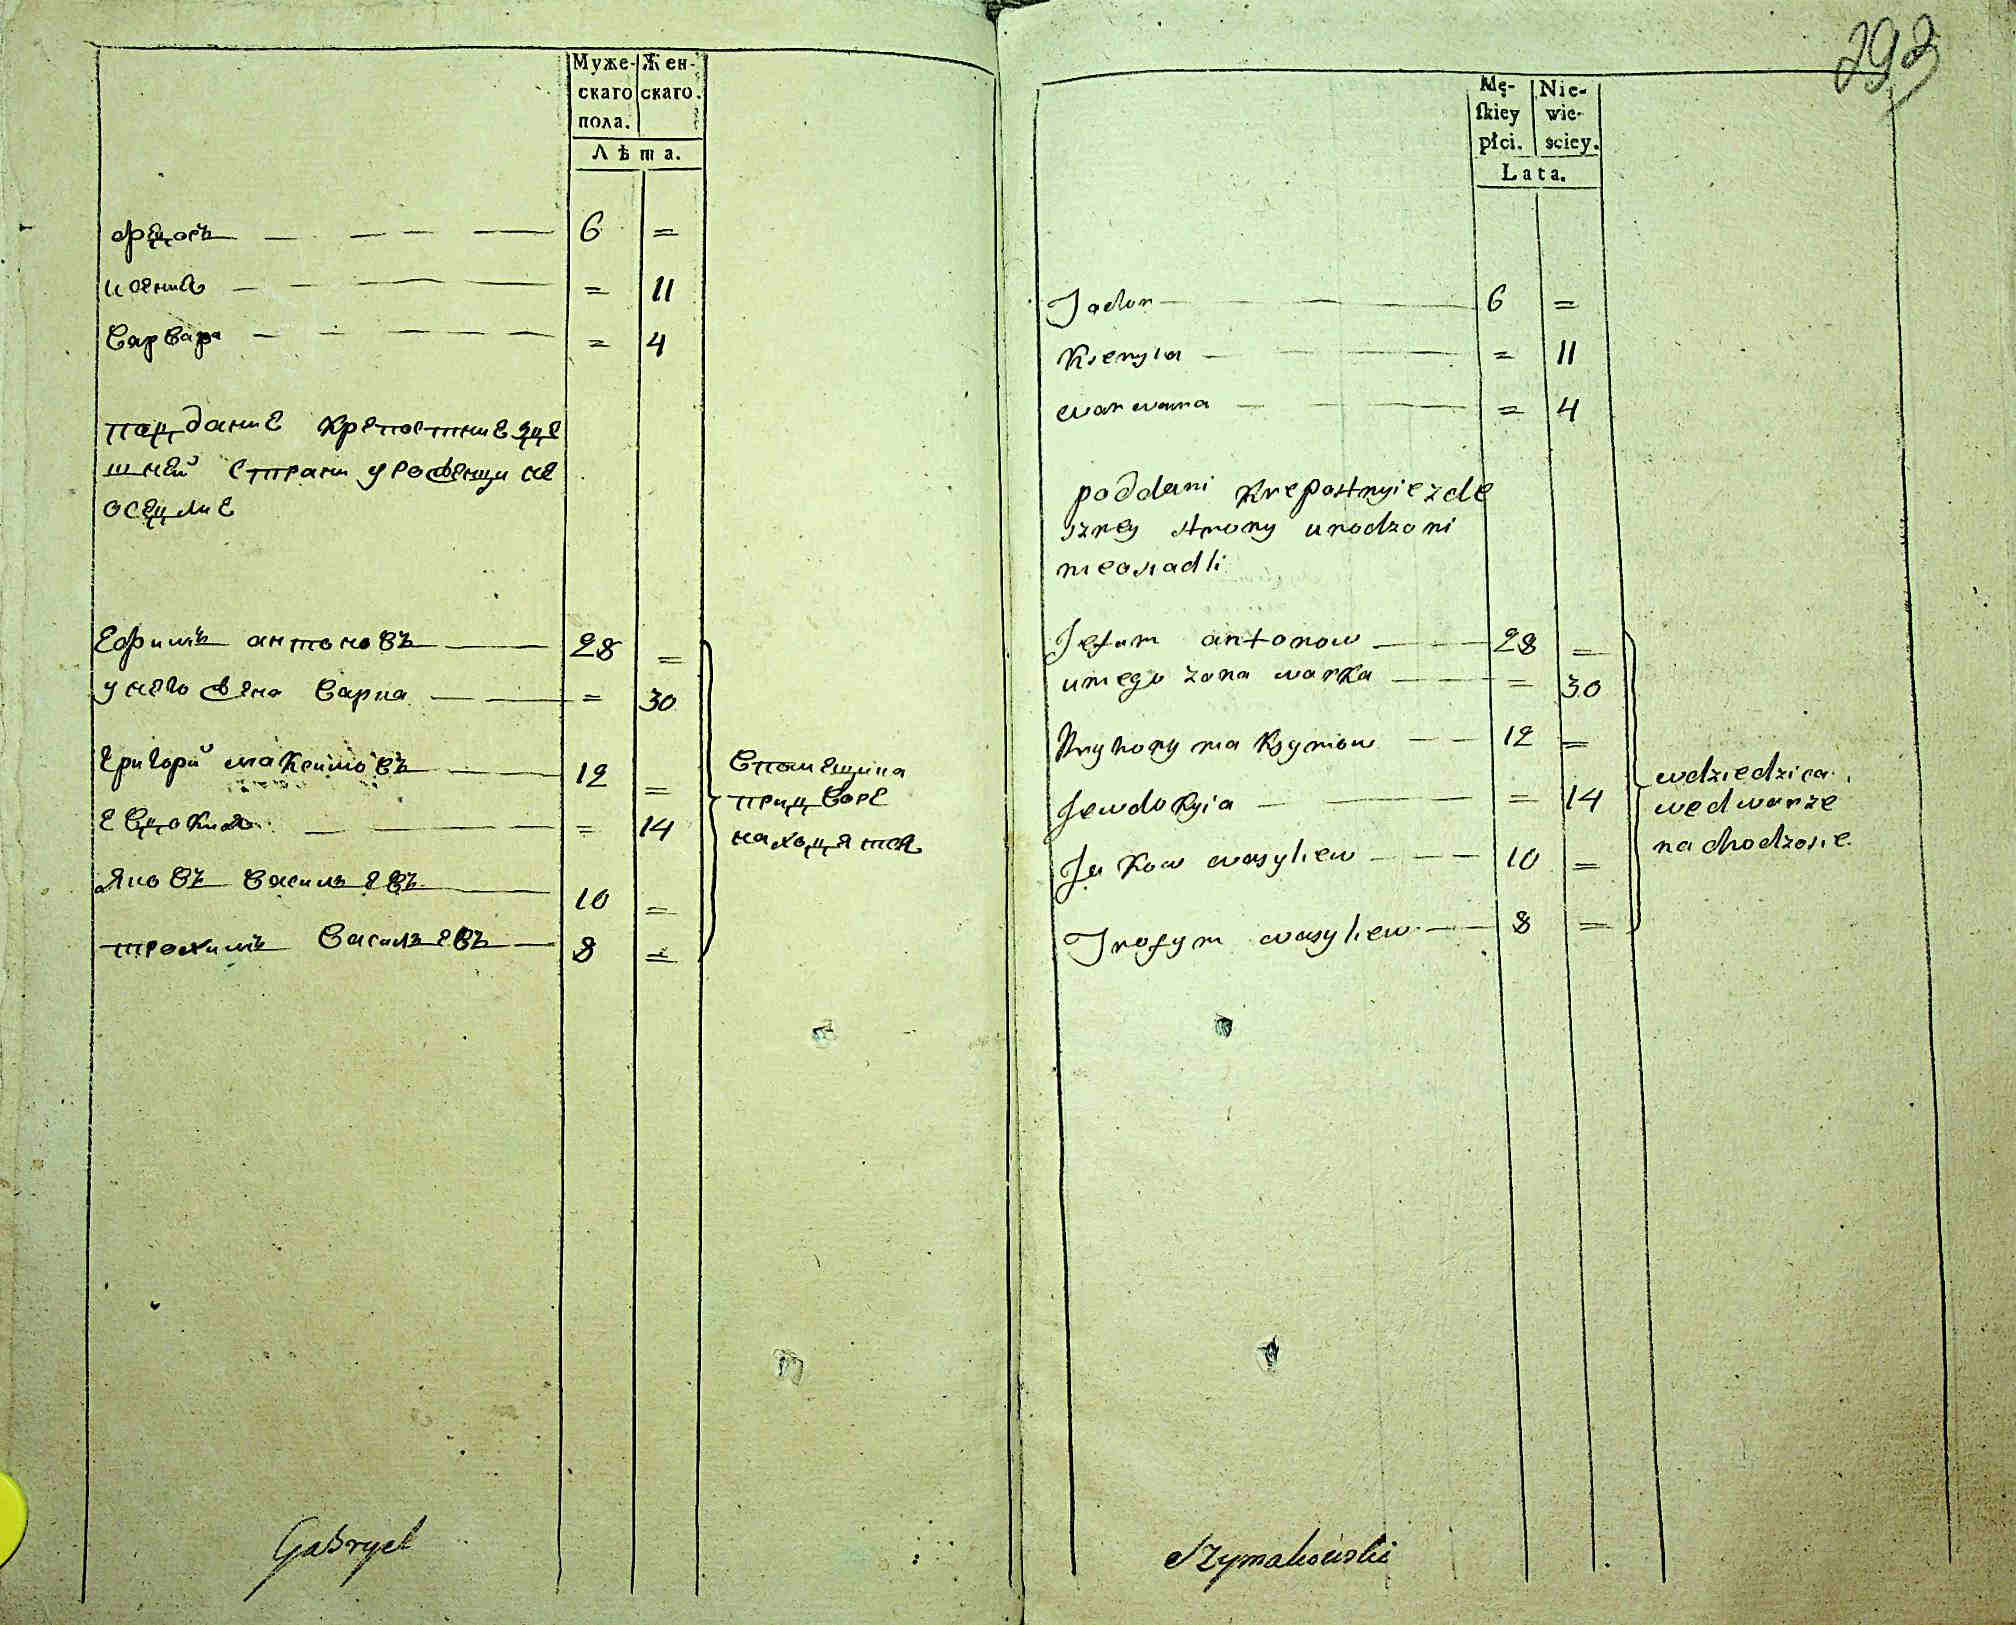 Муже- Жен-
скаго скаго.
пола.
Лѣта.
Фєдосъ 6 =
ксения = 11
варвара = 4
подданиє крєпостниє здє
шнєй страни урожєнци нє
осєдлиє
єфимъ антоновъ 28 =
у нєго жена варка = 30
григорий максимовъ 12 =
євдокия = 14
яковъ василъєвъ 10 =
трохимъ василъєвъ 8 =
впомєщика
придворє
находятся
Gabryel
292
Mę- Nie-
skiey wie-
płci. sciey.
Lata.
Fedor 6 =
Ksenyia = 11
warwara = 4
poddani Krepostnyie zde
szney strony urodzoni
nieosiadli
Jefim antonow 28 =
uniego zona warka = 30
Hryhory maksymow 12 =
Jewdokyia = 14
Jakow wasyliew 10 =
Trofym wasyliew 8 =
wdziedzica
wedwarze
nachodzosie
Szymakowski